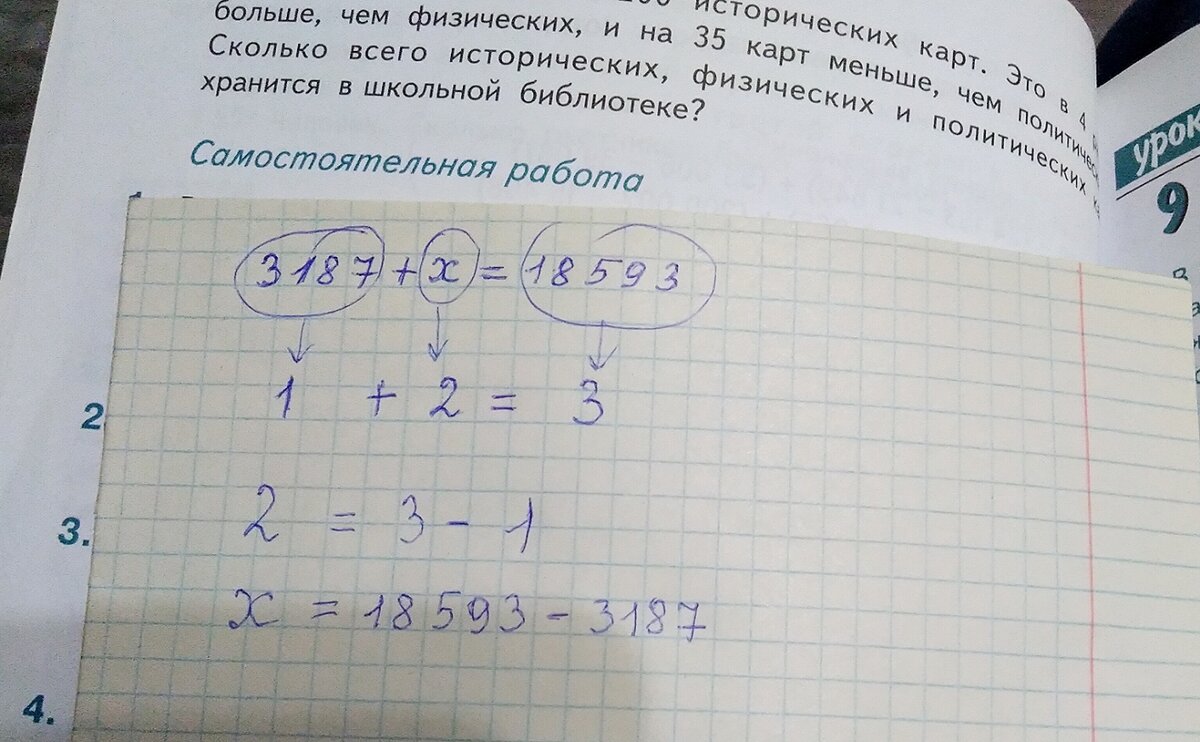 исторических карт. Это в 4
больше, чем физических, и на 35 карт меньше, чем
Сколько всего исторических, физических и политических
хранится в школьной библиотеке?
Самостоятельная работа
урок
9
3187 + x = 18593
1 + 2 = 3
2
2 = 3 - 1
3.
x = 18593 - 3187
4.